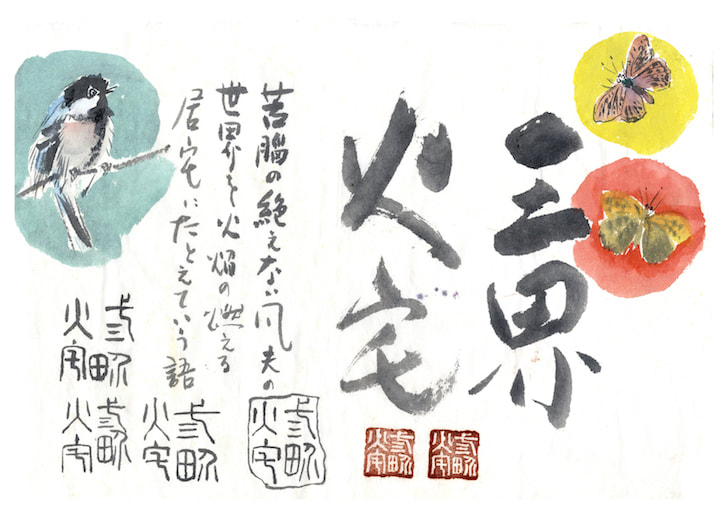 三界
火宅
苦脳の絶えない凡夫の
世界を火焔の燃える
居宅にたとえていう語
弎界
火宅
弎界
火宅
弎界
火宅
弎界
火宅
弎界
火宅
弎界
火宅